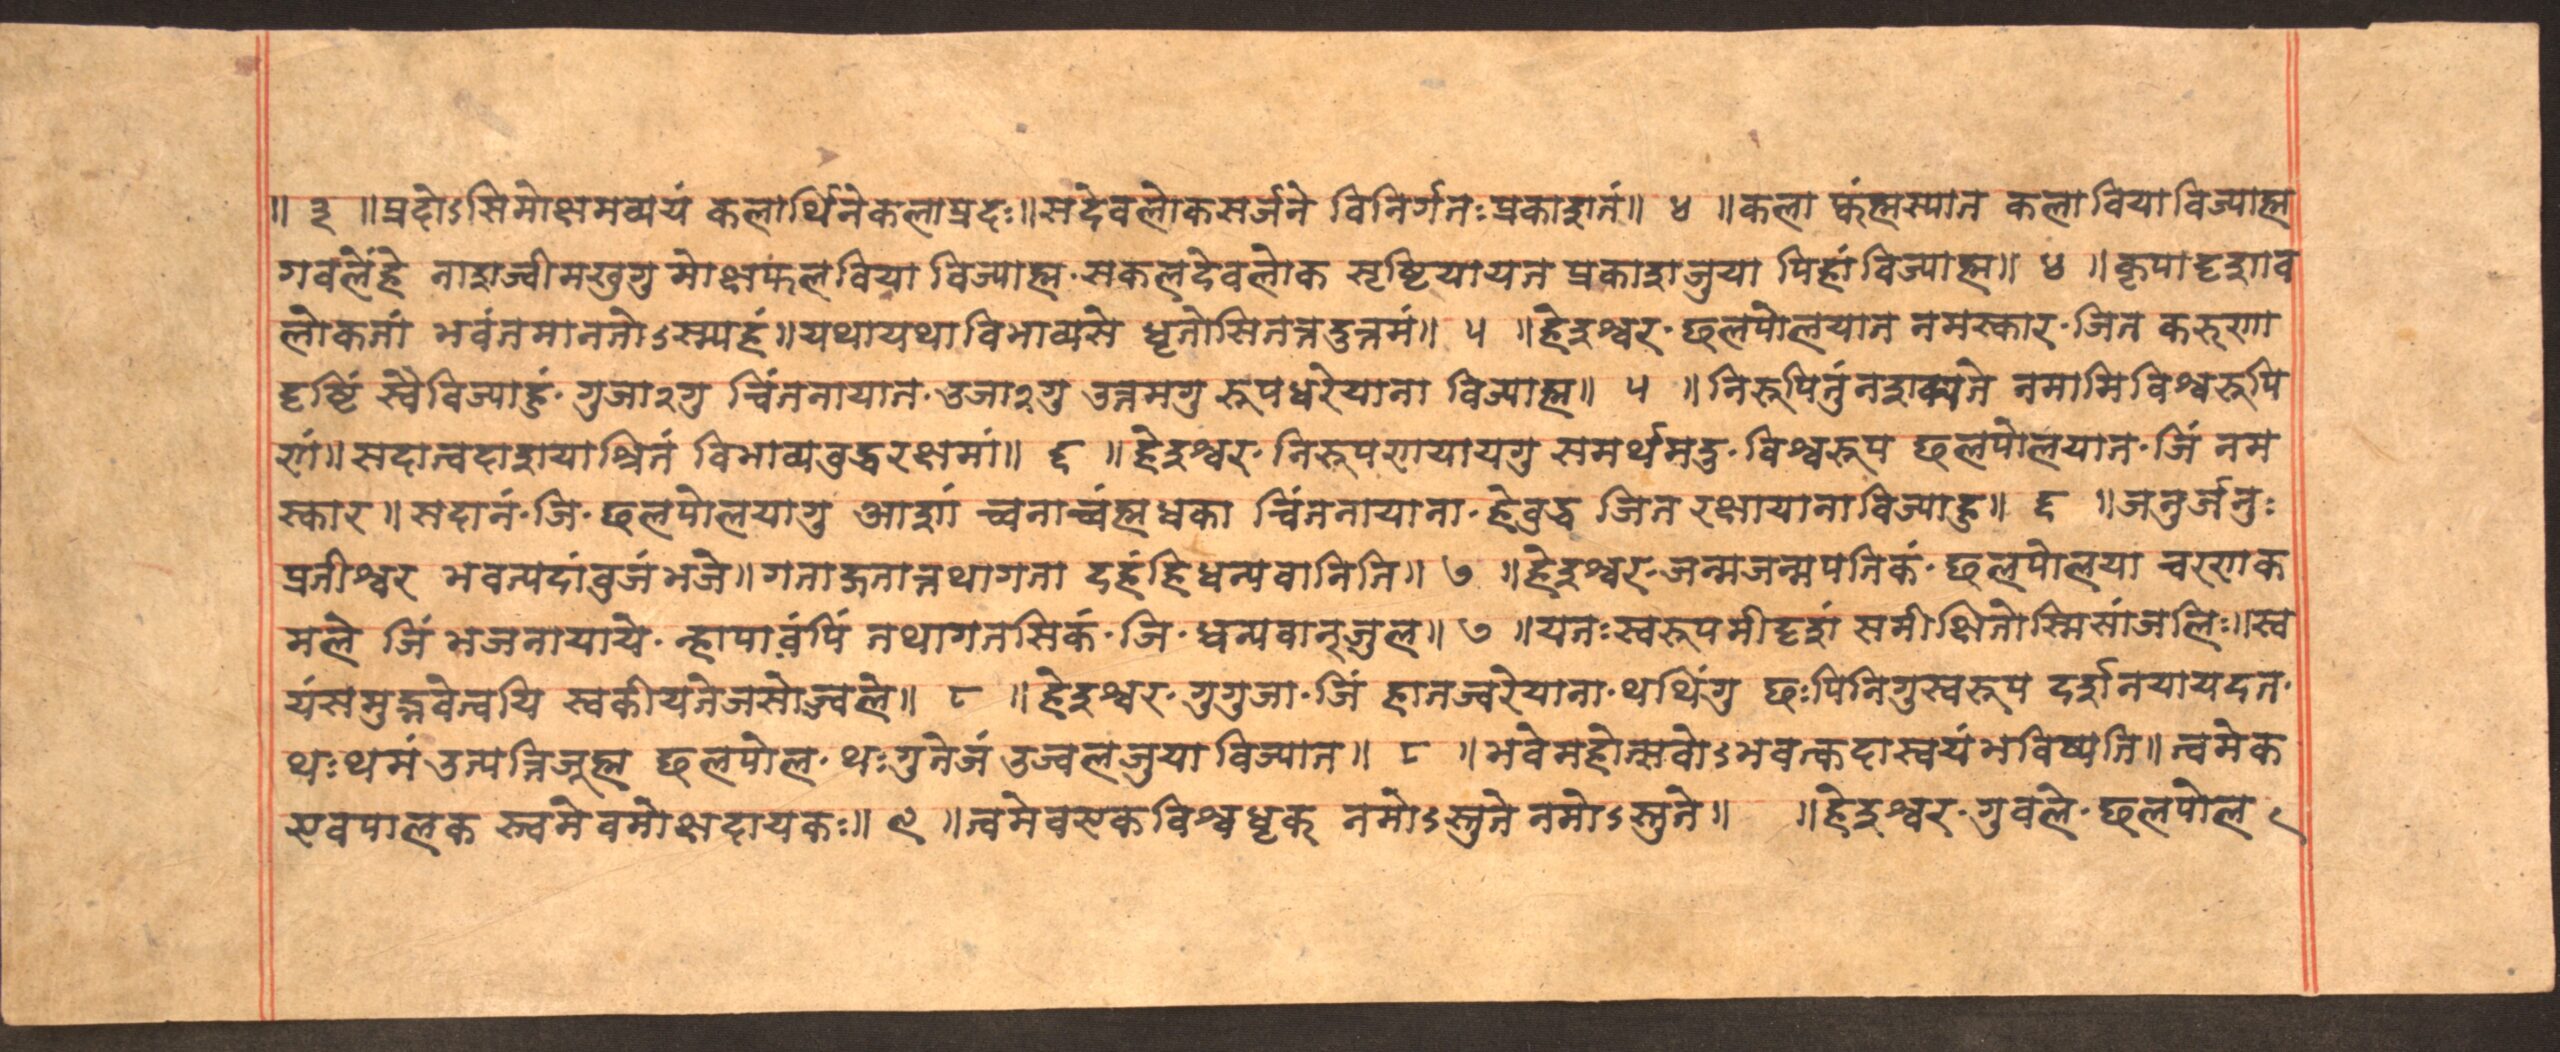 ॥ ३ ॥प्रदोऽसिमोक्षमव्ययं कलार्थिनेकलाप्रदः॥सदेवलोकसर्जने विनिर्गतःप्रकाशनं॥ ४ ॥कला फ्कंह्मस्यात कलावियाविज्याह्म
गवलेंहे नाशज्वीमखुगु मोक्षफलविया विज्याह्म·सकलदेवलोक सृष्टियायत प्रकाशजुया पिहांविज्याह्म॥ ४ ॥कृपादृशाव
लोकतां भवंतमानतोऽस्म्यहं॥यथायथाविभाव्यसे धृतोसितत्तदुत्तमं॥ ५ ॥हेईश्वर·छलपोलयात नमस्कार·जित करुणा
दृष्टिं स्वैविज्याहुं·गुजा२गु चिंतनायात·उजा२गु उत्तमगु रूपधरेयाना विज्याह्म॥ ५ ॥निरूपितुंनशक्यते नमामिविश्वरूपि
णं॥सदात्वदाशयाश्रितं विभाव्यवुद्धरक्षमां॥ ६ ॥हेईश्वर·निरूपणयायगु समर्थमदु·विश्वरूप छलपोलयात·जिं नम
स्कार॥सदानं·जि·छलपोलयागु आशां च्वनाच्वंह्मधका चिंतनायाना·हेवुद्ध जित रक्षायानाविज्याहु॥ ६ ॥जनुर्जनुः
प्रतीश्वर भवत्पदांवुजंभजे॥गताङ्गतात्तथागता दहंहिधन्यवानिति॥ ७ ॥हेईश्वर·जन्मजन्मपतिकं·छलपोलया चरणक
मले जिं भजनायाये·न्हापावंपिं तथागतसिकं·जि·धन्यवान्जुल॥ ७ ॥यतःस्वरूपमीदृशं समीक्षितोस्मिसांजलिः॥स्व
यंसमुद्भवेत्वयि स्वकीयतेजसोज्वले॥ ८ ॥हेईश्वर·गुगुजा·जिं हातज्वरेयाना·थथिंगु छःपिनिगुस्वरूप दर्शनयायदत·
थःथमं उत्पत्तिजूह्म छलपोल·थःगुतेजं उज्वलजुया विज्यात॥ ८ ॥भवेमहोत्सवोऽभवत्कदास्वयंभविष्यति॥त्वमेक
एवपालक स्त्वमेवमोक्षदायकः॥ ९ ॥त्वमेवएकविश्वधृक् नमोऽस्तुते नमोऽस्तुते॥ ॥हेईश्वर·गुवले·छलपोल ९